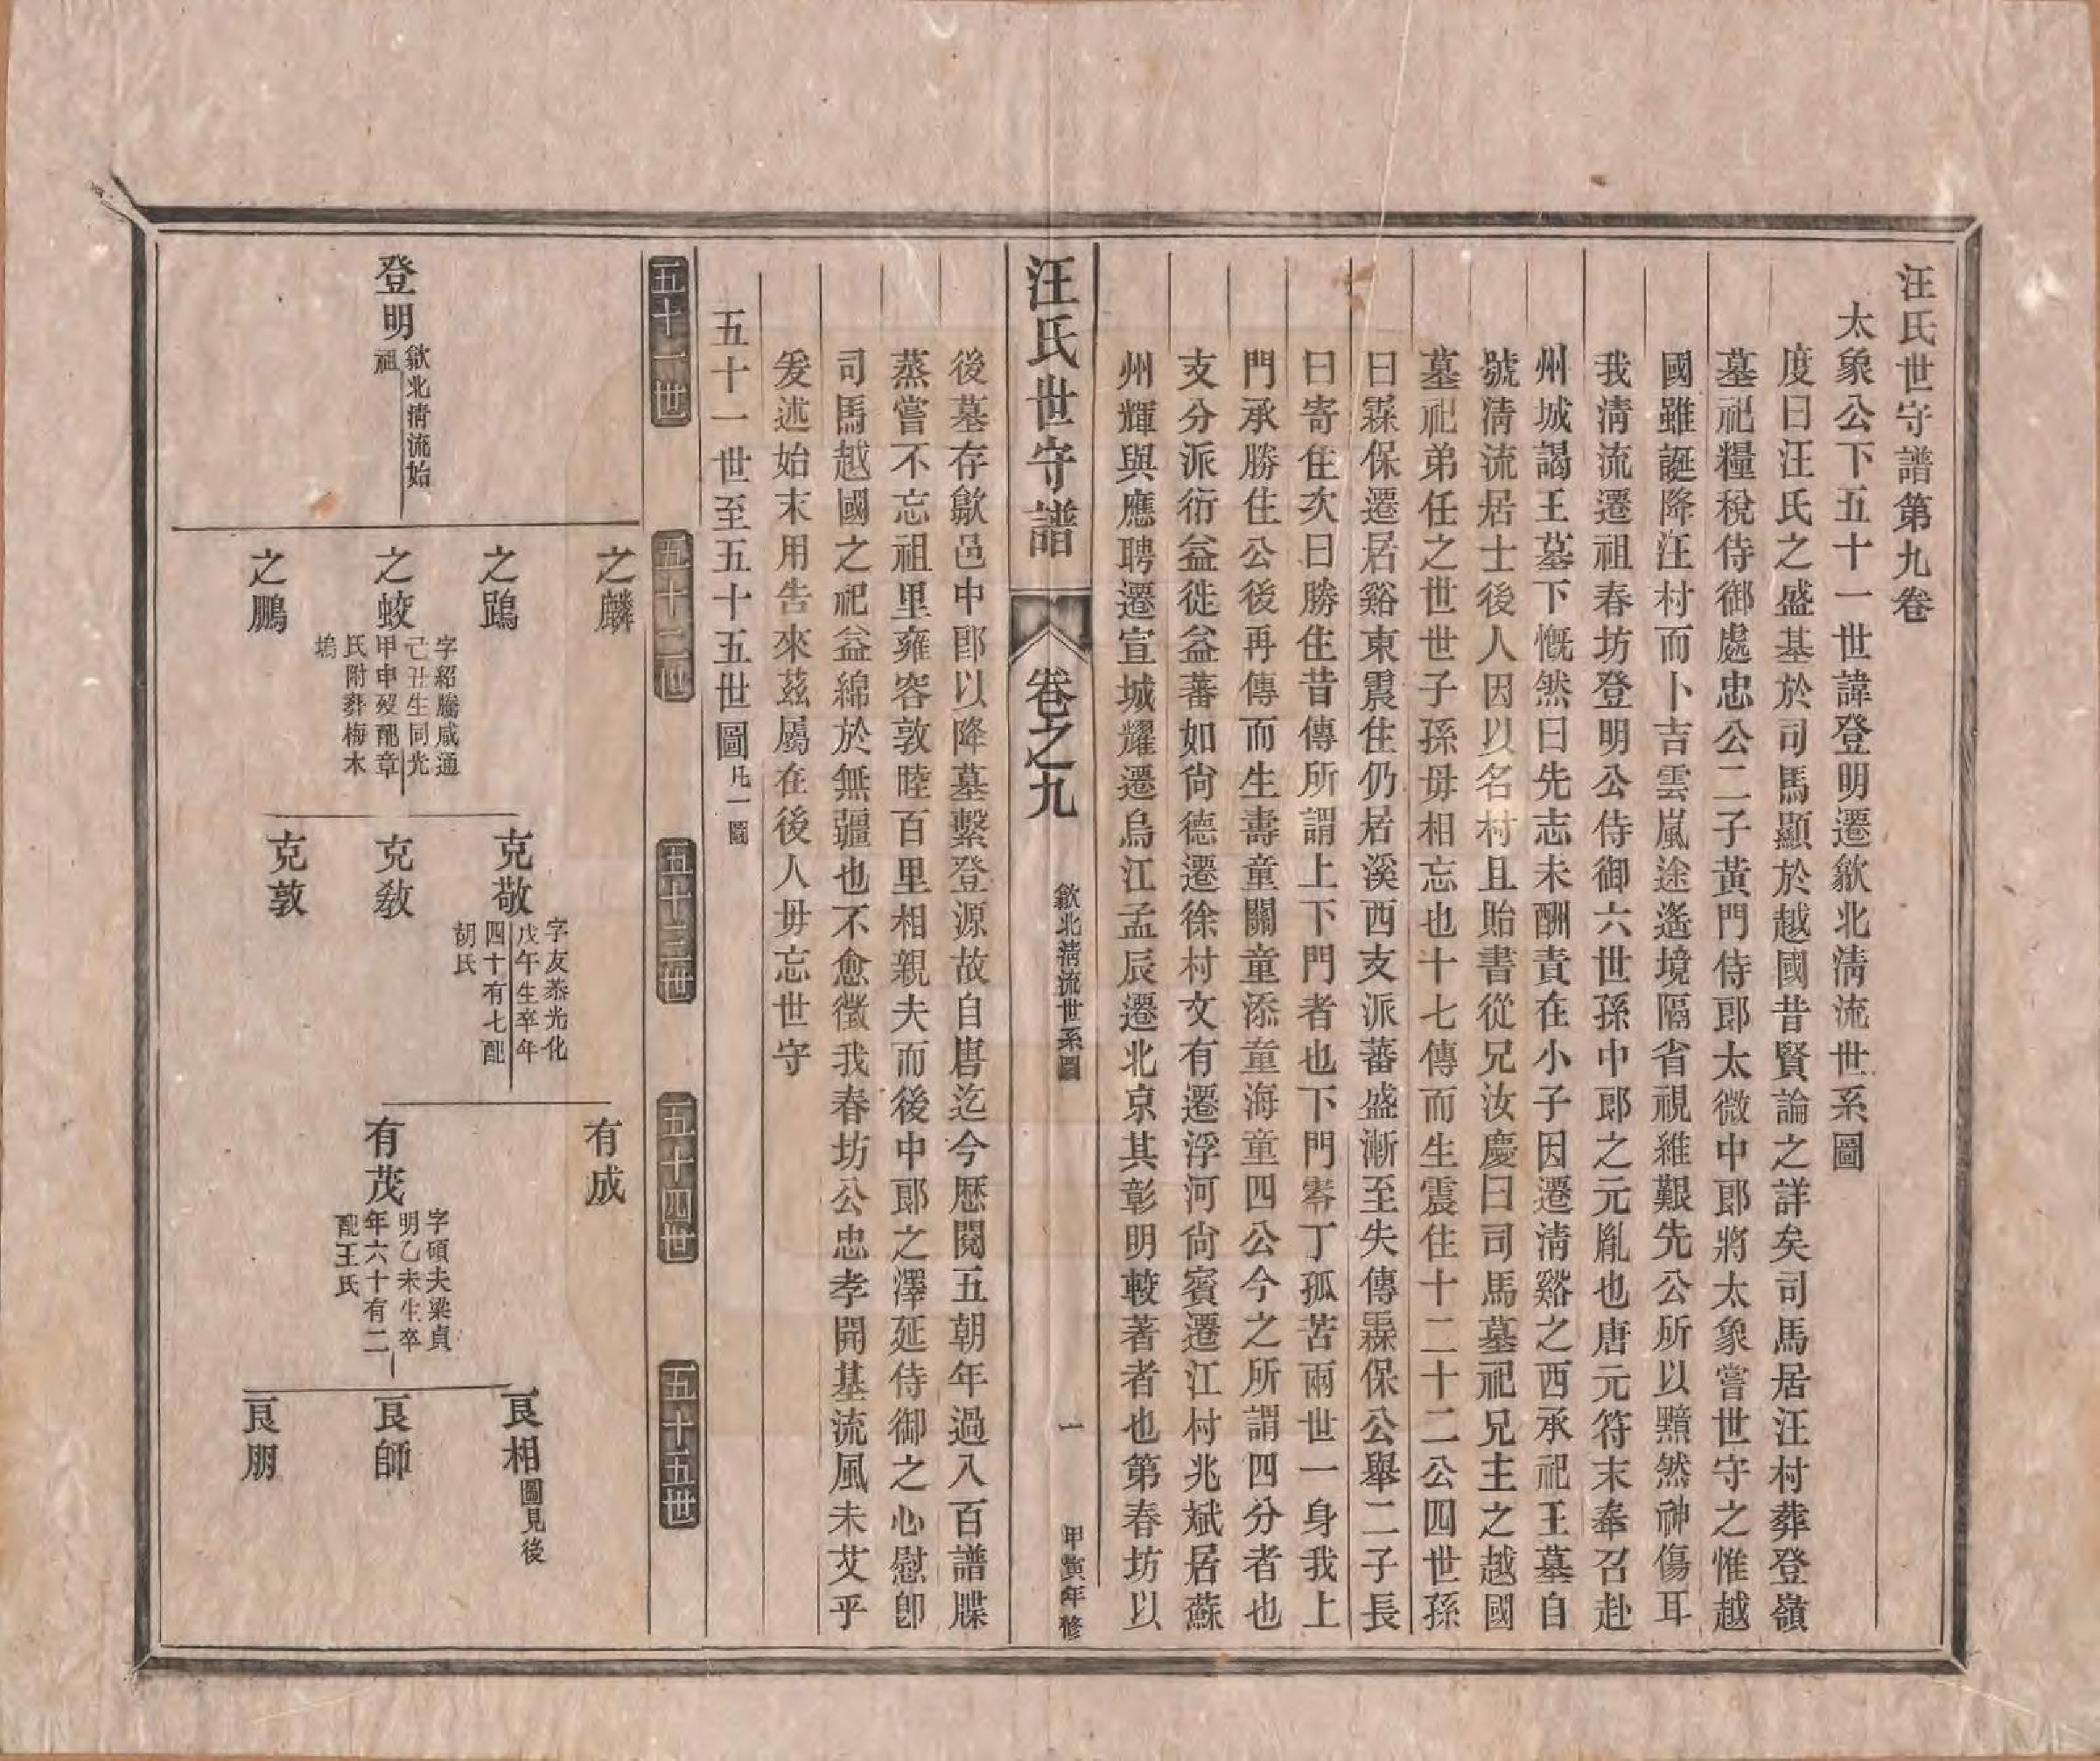 汪氏世守譜第九卷
太象公下五十一世諱登明遷歙北清流世系圖
度曰汪氏之盛基於司馬顯於越國昔賢論之詳矣司馬居汪村葬登嶺
墓祀糧稅侍御處忠公二子黃門侍郎太微中郎將太象嘗世守之惟越
國雖誕降汪村而卜吉雲嵐途遙境隔省視維艱先公所以黯然神傷耳
我清流遷祖春坊登明公侍御六世孫中郎之元胤也唐元符末奉召赴
州城謁王墓下慨然曰先志未酬責在小子因遷清谿之西承祀王墓自
號清流居士後人因以名村且貽書從兄汝慶曰司馬墓祀兄主之越國
墓祀弟任之世世子孫毋相忘也十七傳而生震住十二十二公四世孫
曰霖保遷居谿東震住仍居溪西支派蕃盛漸至失傳霖保公舉二子長
曰寄住次曰勝住昔傳所謂上下門者也下門零丁孤苦兩世一身我上
門承勝住公後再傳而生壽童關童添童海童四公今之所謂四分者也
支分派衍益徙益蕃如尚德遷徐村文有遷浮河尚賓遷江村兆斌居蘇
州輝與應聘遷宣城耀遷烏江孟辰遷北京其彰明較著者也第春坊以
汪氏世守譜 卷之九 歙北清流世系圖 一 甲寅年修
後墓存歙邑中郎以降墓繫登源故自唐迄今歷閱五朝年過入百譜牒
蒸嘗不忘祖里雍容敦睦百里相親夫而後中郎之澤延侍御之心慰卽
司馬越國之祀益綿於無疆也不愈徵我春坊公忠孝開基流風未艾乎
爰述始末用告來茲屬在後人毋忘世守
五十一世至五十五世圖 凡一圖
五十一世 五十二世 五十三世 五十四世 五十五世
登明 歙北清流始祖
之麟
之鵾
之蛟 字紹騰咸通己丑生同光甲申歿配章氏附葬梅木塢
之鵬
克敬 字友恭光化戊午生卒年四十有七配胡氏
克敎
克敦
有成
有茂 字碩夫梁貞明乙未生卒年六十有二配王氏
良相 圖見後
良師
良朋